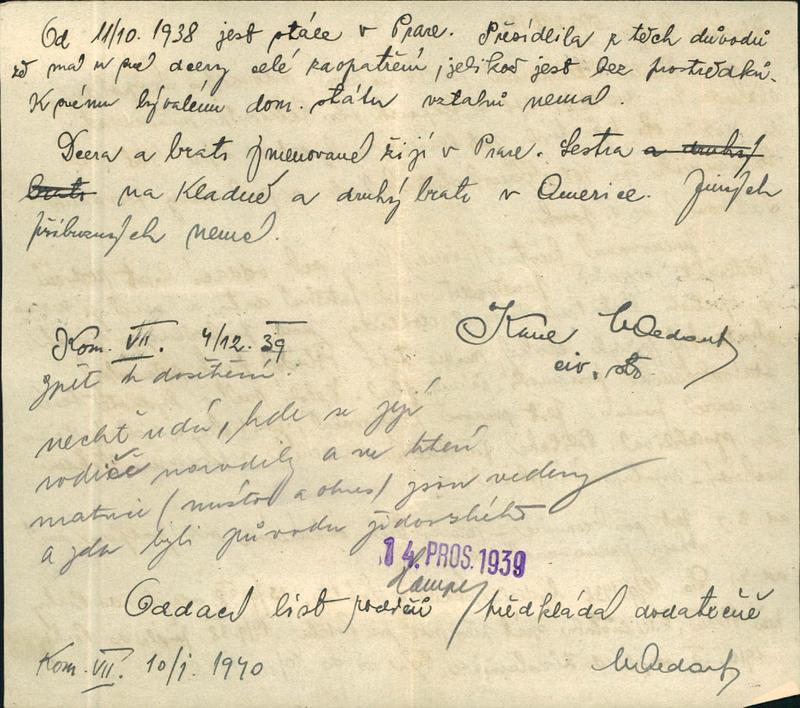 Od 11/10. 1938 jest stále v Praze. Přesídlila z těch důvodů
že má u své dcery celé zaopatření, jelikož jest bez prostředků.
K svému bývalému dom. státu vztahů nemá.
Dcera a bratr jmenované žijí v Praze. Sestra a druhý
bratr na Kladně a druhý bratr v Americe. Jiných
příbuzných nemá.
Kom. VII. 4/12. 39
Karel
civ. str.
zpět k došetření.
nechť udá, kde se její
rodiče narodily a ve které
matrice (místo a okres) jsou vedeny
a zda byli původu židovského
14. PROS. 1939
Oddací list rodičů předkládá dodatečně
Kom. VII. 10/1. 1940